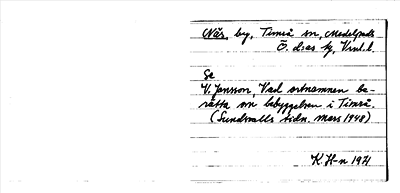 När, by, Timrå sn, Medelpads
Ö. d:as kf, Vrnl.l.
Se
V. Jansson, Vad ortnamnen be-
rätta om bebyggelsen i Timrå.
(Sundsvalls tidn. mars 1948)
K. H-n 1971